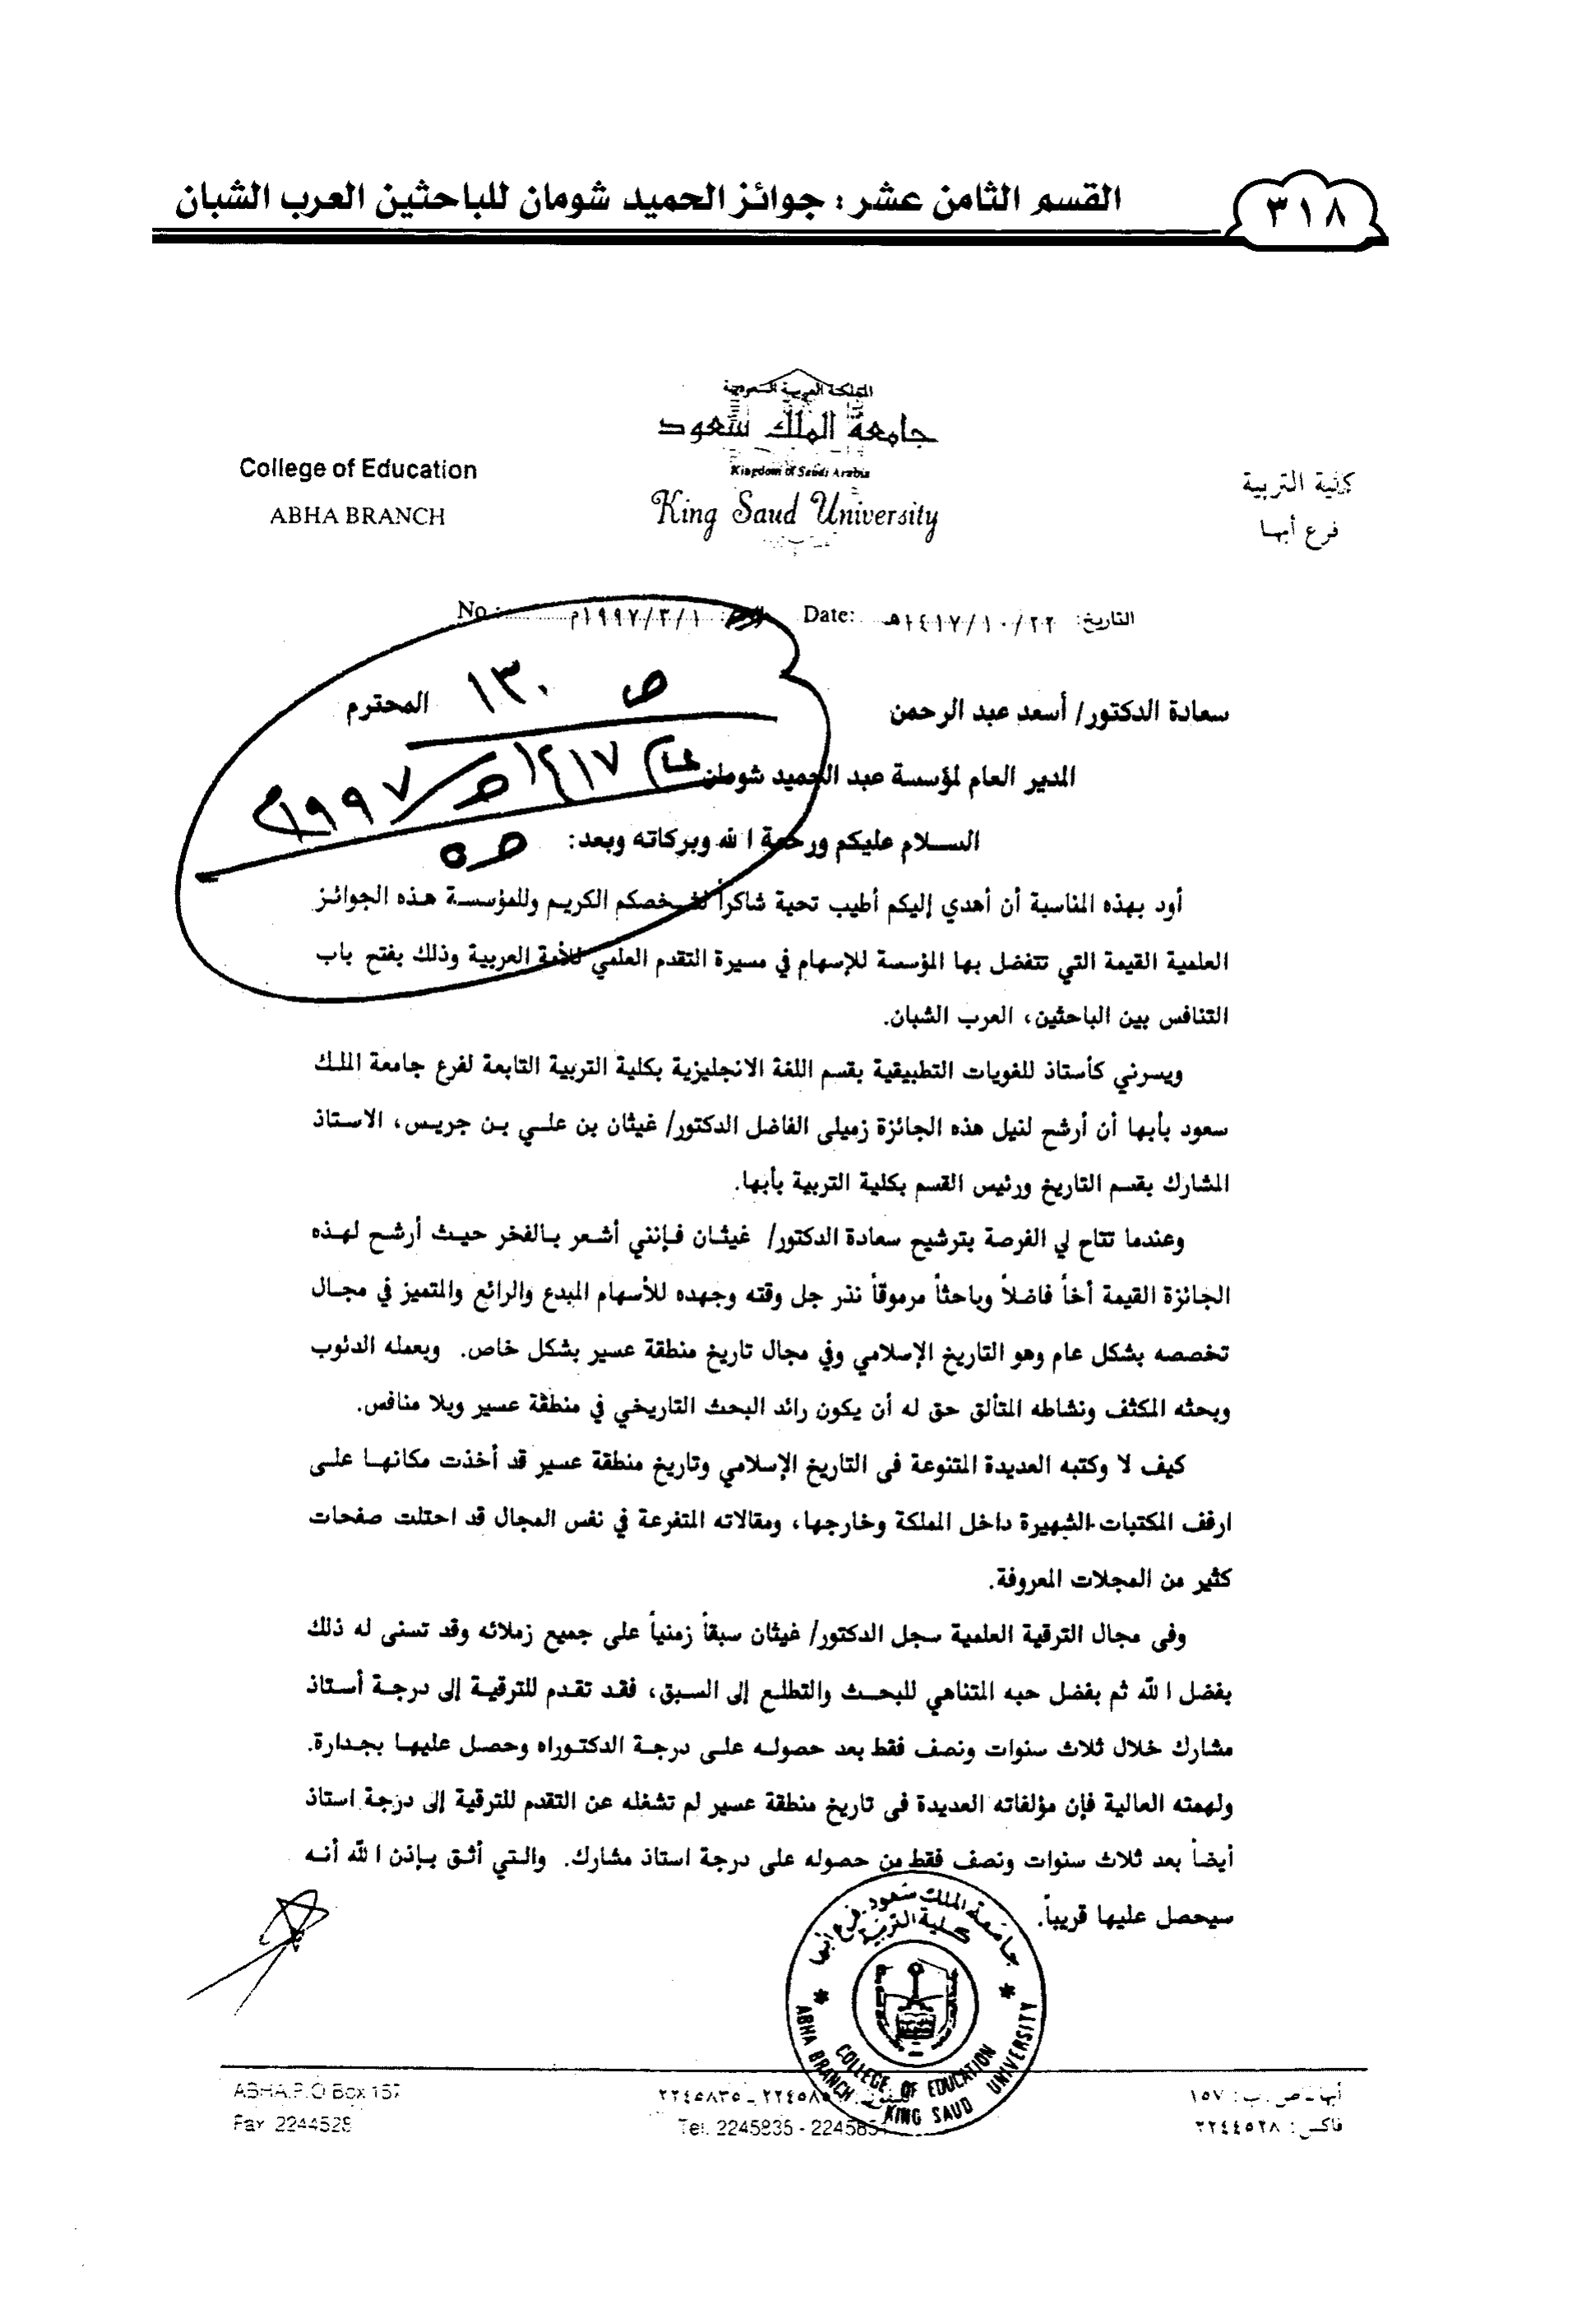 ٣١٨
القسم الثامن عشر : جوائز الحميد شومان للباحثين العرب الشبان
المملكة العربية السعودية
جامعة الملك سعود
Kingdom of Saudi Arabia
King Saud University
College of Education
ABHA BRANCH
كلية التربية
فرع أبها
التاريخ: ١٤١٧/١٠/٢٢هـ Date: ١٩٩٧/٣/١م No :
ص ١٣٠
١٤١٧هـ / ١٩٩٧م
سعادة الدكتور/ أسعد عبد الرحمن المحترم
المدير العام لمؤسسة عبد الحميد شومان
السلام عليكم ورحمة الله وبركاته وبعد:
أود بهذه المناسبة أن أهدي إليكم أطيب تحية شاكراً لشخصكم الكريم وللمؤسسة هذه الجوائز
العلمية القيمة التي تتفضل بها المؤسسة للإسهام في مسيرة التقدم العلمي للأمة العربية وذلك بفتح باب
التنافس بين الباحثين، العرب الشبان.
ويسرني كأستاذ للغويات التطبيقية بقسم اللغة الانجليزية بكلية التربية التابعة لفرع جامعة الملك
سعود بأبها أن أرشح لنيل هذه الجائزة زميلى الفاضل الدكتور/ غيثان بن علي بن جريس، الاستاذ
المشارك بقسم التاريخ ورئيس القسم بكلية التربية بأبها.
وعندما تتاح لي الفرصة بترشيح سعادة الدكتور/ غيثان فإنني أشعر بالفخر حيث أرشح لهذه
الجائزة القيمة أخاً فاضلاً وباحثاً مرموقاً نذر جل وقته وجهده للأسهام المبدع والرائع والمتميز في مجال
تخصصه بشكل عام وهو التاريخ الإسلامي وفي مجال تاريخ منطقة عسير بشكل خاص. وبعمله الدئوب
وبحثه المكثف ونشاطه المتألق حق له أن يكون رائد البحث التاريخي في منطقة عسير وبلا منافس.
كيف لا وكتبه العديدة المتنوعة فى التاريخ الإسلامي وتاريخ منطقة عسير قد أخذت مكانها على
ارفف المكتبات الشهيرة داخل المملكة وخارجها، ومقالاته المتفرعة في نفس المجال قد احتلت صفحات
كثير من المجلات المعروفة.
وفى مجال الترقية العلمية سجل الدكتور/ غيثان سبقاً زمنياً على جميع زملائه وقد تسنى له ذلك
بفضل الله ثم بفضل حبه المتناهي للبحث والتطلع إلى السبق، فقد تقدم للترقية إلى درجة أستاذ
مشارك خلال ثلاث سنوات ونصف فقط بعد حصوله على درجة الدكتوراه وحصل عليها بجدارة.
ولهمته العالية فإن مؤلفاته العديدة فى تاريخ منطقة عسير لم تشغله عن التقدم للترقية إلى درجة استاذ
أيضاً بعد ثلاث سنوات ونصف فقط من حصوله على درجة استاذ مشارك. والتي أثق بإذن الله أنه
سيحصل عليها قريباً.
جامعة الملك سعود فرع أبها
كلية التربية
COLLEGE OF EDUCATION
ABHA BRANCH KING SAUD UNIVERSITY
أبها ـ ص . ب : ١٥٧
فاكس : ٢٢٤٤٥٢٨
٢٢٤٥٨٣٥
Tel. 2245835 -
ABHA.P.O Box 157
Fax 2244528